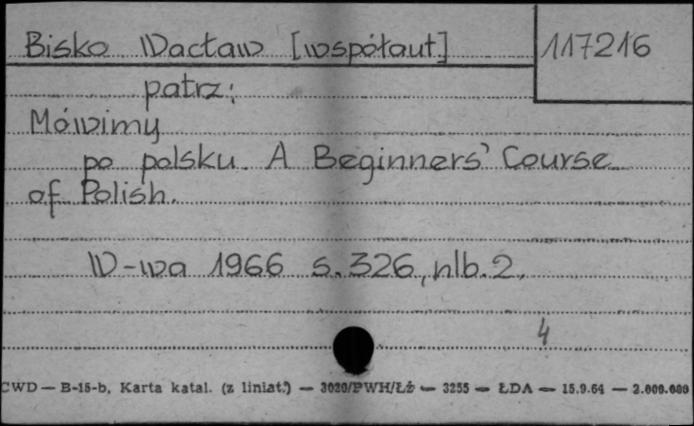 Bisko Wacław [współaut] 117216
patrz:
Mówimy
po polsku. A Beginners' Course
of Polish.
W-wa 1966 s. 326, nlb. 2.
4
CWD — B-15-b, Karta katal. (z liniat.) — 3020/PWH/Łź — 3255 — ŁDA — 15.9.64 — 2.000.000